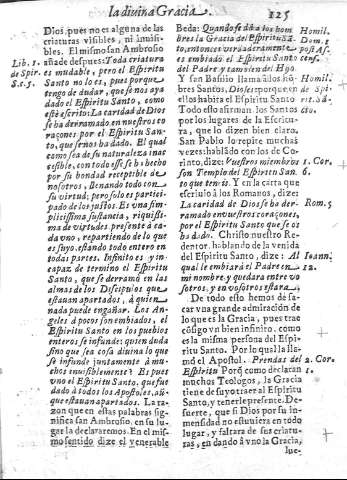 la diuina Gracia.
125
Dios, pues no es alguna de las
criaturas visibles, ni inuisi-
bles. El mismo san Ambrosio
Lib. 1. añade despues: Toda criatura
de Spir. es mudable, pero el Espiritu
S. c. 5. Santo no lo es, pues porque
tengo de dudar, que se nos aya
dado el Espiritu Santo, como
està escrito: La caridad de Dios
se ha derramado en nuestros co
raçones por el Espiritu San-
to, que se nos ha dado. El qual
como sea de su naturaleza inac
cesible, con todo esso, se ha hecho
por su bondad receptible de
nosotros, llenando todo con
su virtud; pero solo es partici-
pado de los justos. Es vna sim-
plicissima sustancia, riquissi-
ma de virtudes, presente à ca-
da vno, repartiendo de lo que
es suyo, estando todo entero en
todas partes. Infinito es y in-
capaz de termino el Espiritu
Santo, que se derramò en las
almas de los Discipulos que
estauan apartados, à quien
nada puede engañar. Los An-
geles à pocos son embiados, el
Espiritu Santo en los pueblos
enteros se infunde: quien duda
sino que sea cosa diuina lo que
se infunde juntamente à mu-
chos inuisiblemente? Es pues
vno el Espiritu Santo, que fue
dado à todos los Apostoles, aũ-
que estauan apartados. La ra-
zon que en estas palabras sig-
nifica san Ambrosio, en su lu-
gar la declararemos. En el mis-
mo sentido dize el venerable
Beda: Quando se dà a los hom Homil.
bres la Gracia del Espiritu Sã- Dom.
to, entonces verdaderamente post As-
es embiado el Espiritu Santo cens.
del Padre y tambien del Hijo.
Y san Basilio llama à los hõ- Homil.
bres Santos, Dioses, porque en de Spi-
ellos habita el Espiritu Santo
Todo esto afirman los Santos
por los lugares de la Escritu-
ra, que lo dizen bien claro.
San Pablo lo repite muchas
vezes: hablãdo con los de Co-
rinto, dize: Vuestros miembros 1. Cor.
son Templo del Espiritu San- 6.
to que teneis. Y en la carta que
escriuiò à los Romanos, dize:
La caridad de Dios se ha der- Rom. 5
ramado en vuestros coraçones,
por el Espiritu Santo que se os
ha dado. Christo nuestro Re-
dentor, hablando de la venida
del Espiritu Santo, dize: Al Ioann.
qual le embiarà el Padre en
mi nombre, y quedara entre vo
sotros, y en vosotros estarà.
De todo esto hemos de sa-
car vna grande admiracion de
lo que es la Gracia, pues trae
cõsigo vn bien infinito, como
es la misma persona del Espi-
ritu Santo. Por lo qual la lla-
mò el Apostol, Prendas del 2. Cor.
Espiritu Porq̃ como declaran 1.
muchos Teologos, la Gracia
tiene de suyo traer al Espiritu
Santo, y tenerle presente. De
suerte, que si Dios por su in-
mensidad no estuuiera en todo
lugar, y faltara de sus criatu-
ras, en dando à vno la Gracia,
lue-